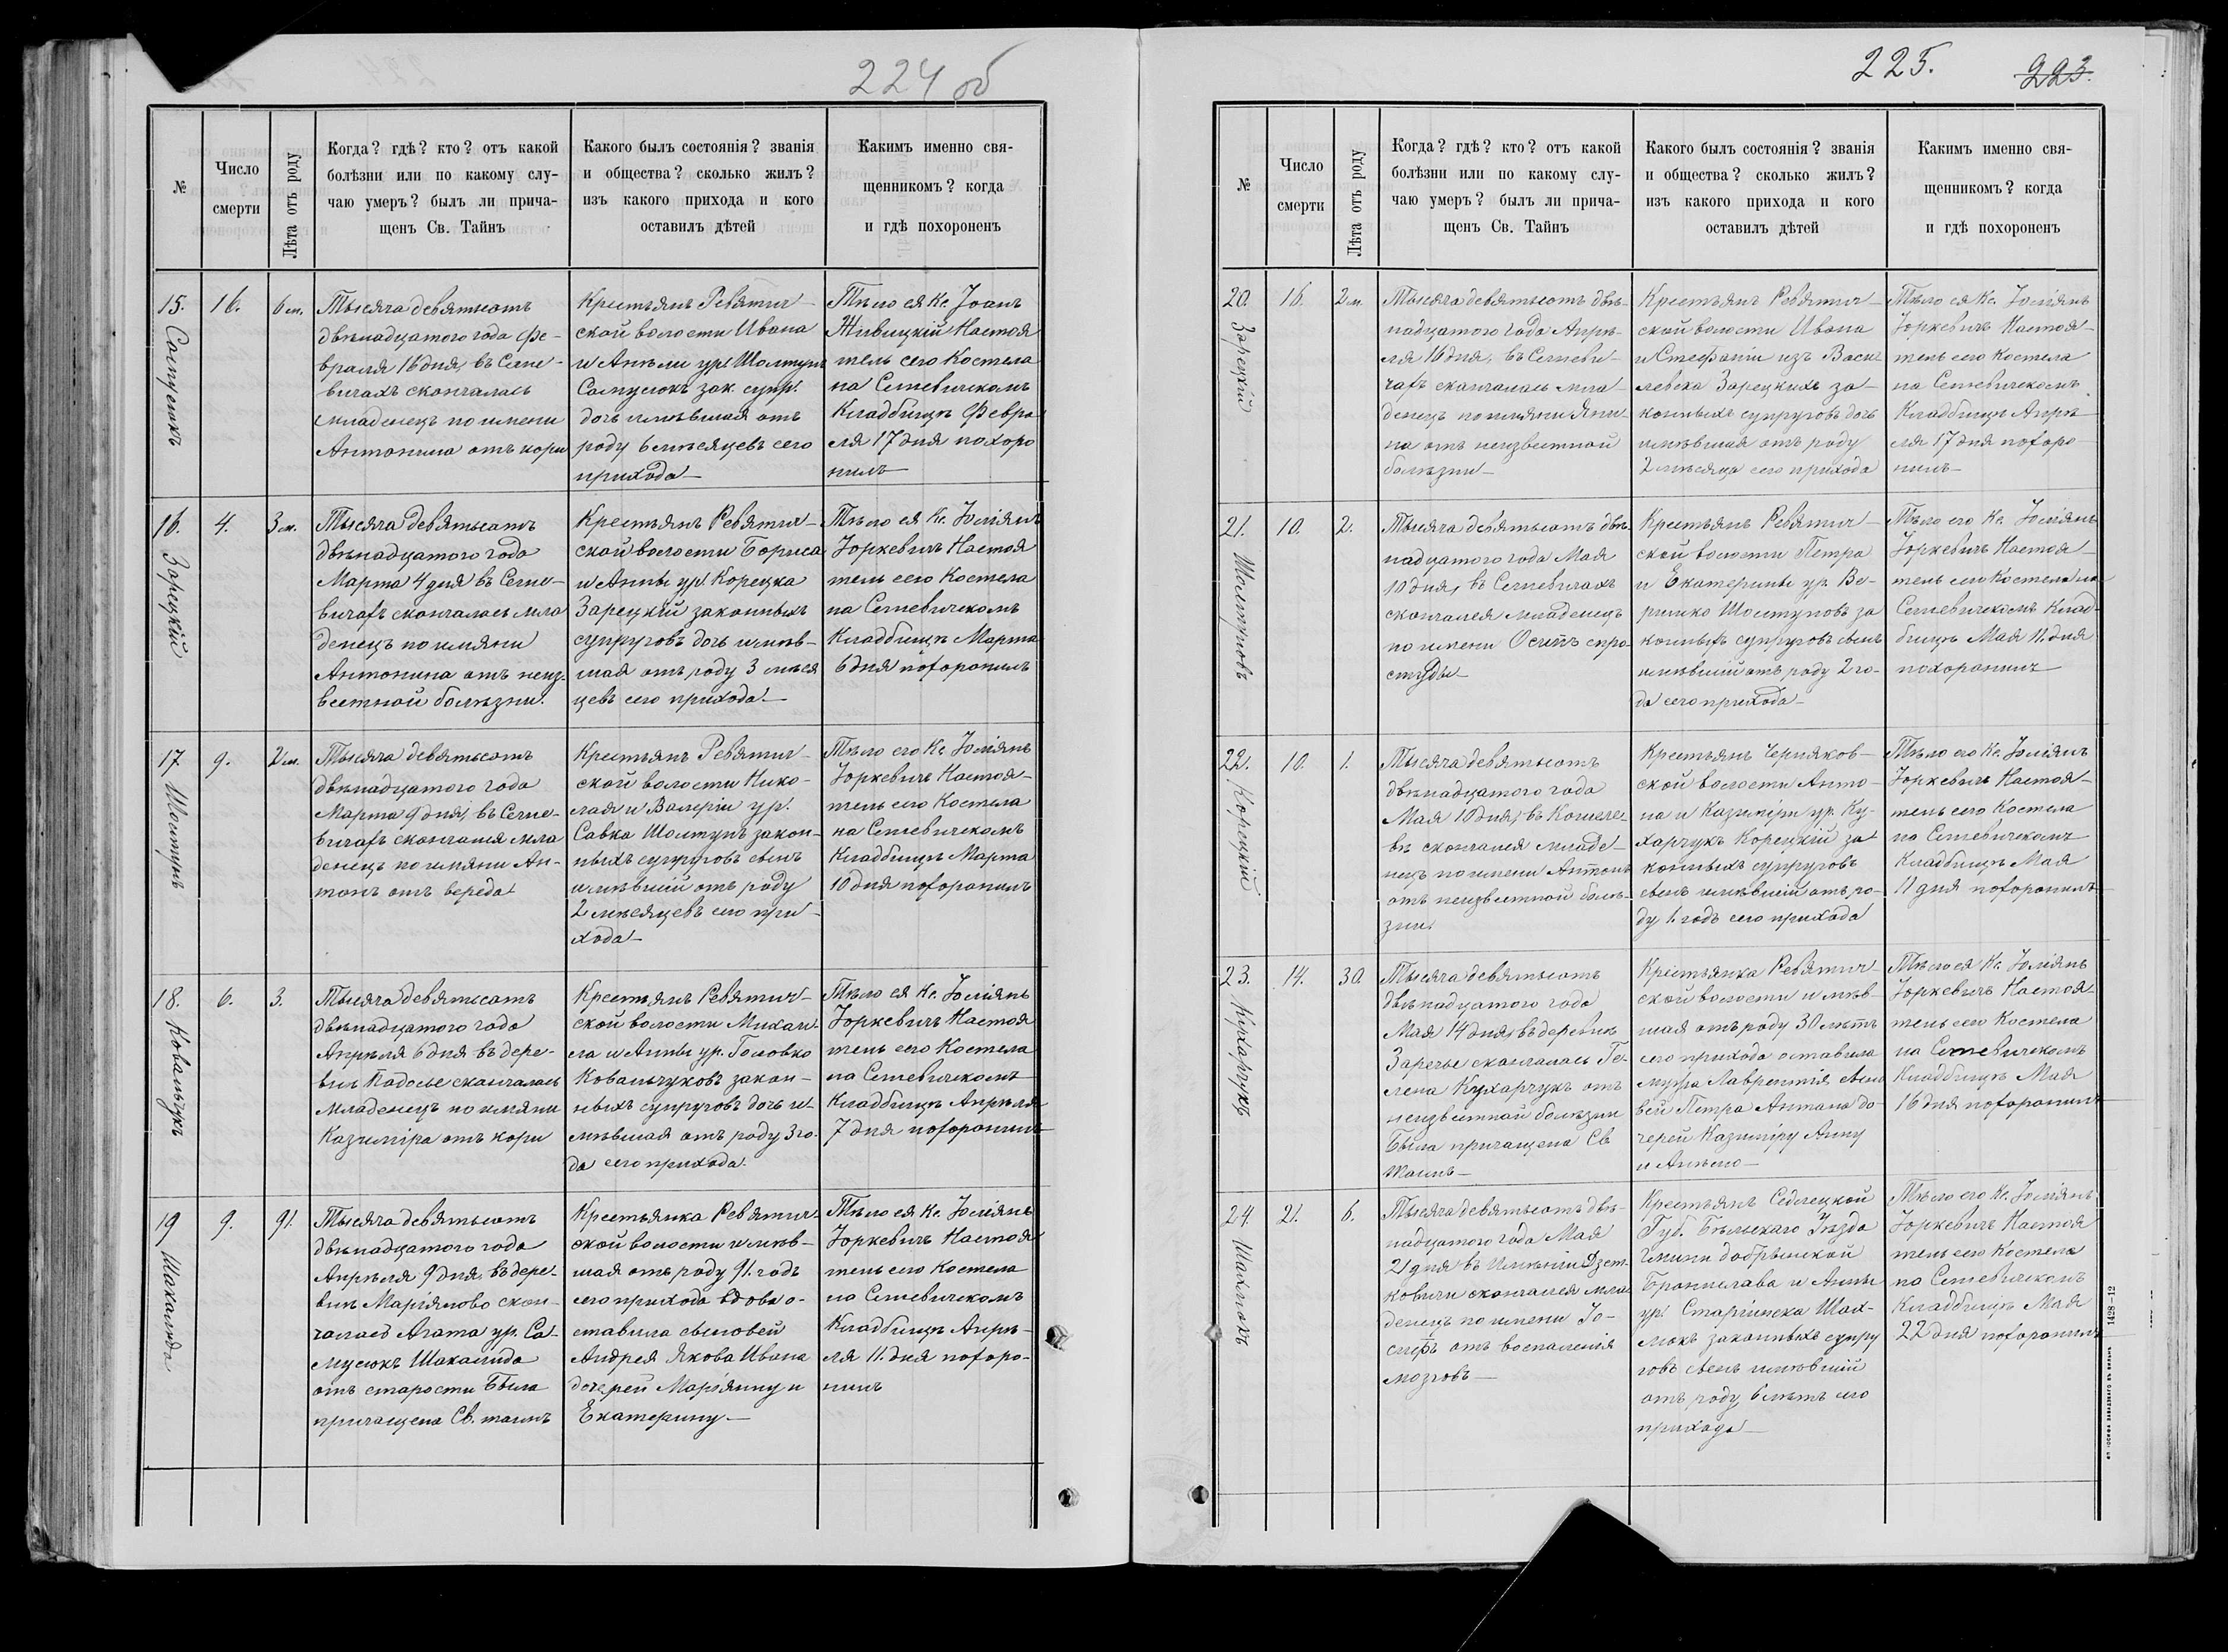 224 об
№
Число
смерти
Лѣта отъ роду
Когда? гдѣ? кто? отъ какой
болѣзни или по какому слу-
чаю умеръ? былъ ли прича-
щенъ Св. Тайнъ
Какого былъ состоянія? званія
и общества? сколько жилъ?
изъ какого прихода и кого
оставилъ дѣтей
Какимъ именно свя-
щенникомъ? когда
и гдѣ похороненъ
15.
16.
6 м.
Тысяча девятьсотъ
двѣнадцатого года Фе-
враля 16 дня, въ Сегне-
вичахъ скончалась
младенецъ по имени
Антонина отъ кори
Крестьянъ Ревятич-
ской волости Ивана
и Анѣли ур. Шолтунъ
Сапусюкъ зак. супр.
дочь имѣвшая отъ
роду 6 мѣсяцевъ сего
прихода
Тѣло ея Кс. Іоанъ
Живицкій Настоя
тель сего Костела
на Сегневичскомъ
Кладбищѣ Февра
ля 17 дня похоро
нилъ
16. Зарецкій
4.
3 м.
Тысяча девятьсотъ
двѣнадцатого года
Марта 4 дня въ Сегне-
вичахъ скончалась мла
денецъ по имяни
Антонина отъ неиз-
вестной болѣзни.
Крестьянъ Ревятич-
ской волости Бориса
и Анны ур. Корецка
Зарецкій законныхъ
супруговъ дочь имѣв-
шая отъ роду 3 мѣся
цевъ сего прихода
Тѣло ея Кс. Юліянъ
Юркевичъ Настоя
тель сего Костела
на Сегневичскомъ
Кладбищѣ Марта
6 дня похоронилъ
17 Шолтунъ
9.
2 м.
Тысяча девятьсотъ
двѣнадцатого года
Марта 9 дня, въ Сегне-
вичахъ скончался мла
денецъ по имяни Ан-
тонъ отъ вереда
Крестьянъ Ревятич-
ской волости Нико-
лая и Валеріи ур.
Савка Шолтунъ закон-
ныхъ супруговъ сынъ
имѣвшій отъ роду
2 мѣсяцевъ сего при-
хода
Тѣло его Кс. Юліянъ
Юркевичъ Настоя-
тель сего Костела
на Сегневичскомъ
Кладбищѣ Марта
10 дня похоронилъ
18. Ковальчукъ
6.
3.
Тысяча девятьсотъ
двѣнадцатого года
Апрѣля 6 дня въ дере-
внѣ Подосье скончалась
младенецъ по имяни
Казиміра отъ кори
Крестьянъ Ревятич-
ской волости Михаи-
ла и Анны ур. Головко
Ковальчуковъ закон-
ныхъ супруговъ дочь и-
мѣвшая отъ роду 3 го-
да сего прихода.
Тѣло ея Кс. Юліянъ
Юркевичъ Настоя
тель сего Костела
на Сегневичскомъ
Кладбищѣ Апрѣля
7 дня похоронилъ
19 Шакалида
9.
91.
Тысяча девятьсотъ
двѣнадцатого года
Апрѣля 9 дня, въ дере-
внѣ Маріяново скон-
чалась Агата ур. Са-
мусюкъ Шакалида
отъ старости Была
причащена Св. таинъ
Крестьянка Ревятич-
ской волости имѣв-
шая отъ роду 91. годъ
сего прихода вдова о-
ставила сыновей
Андрея Якова Ивана
дочерей Маріянну и
Екатерину
Тѣло ея Кс. Юліянъ
Юркевичъ Настоя
тель сего Костела
на Сегневичскомъ
Кладбищѣ Апрѣ-
ля 11. дня похоро-
нилъ
225. 223.
№
Число
смерти
Лѣта отъ роду
Когда? гдѣ? кто? отъ какой
болѣзни или по какому слу-
чаю умеръ? былъ ли прича-
щенъ Св. Тайнъ
Какого былъ состоянія? званія
и общества? сколько жилъ?
изъ какого прихода и кого
оставилъ дѣтей
Какимъ именно свя-
щенникомъ? когда
и гдѣ похороненъ
20. Зарецкій
16.
2 м.
Тысяча девятьсотъ двѣ-
надцатого года Апрѣ-
ля 16 дня, въ Сегневи-
чахъ скончалась мла-
денецъ по имяни Яни-
на отъ неизвестной
болѣзни
Крестьянъ Ревятич-
ской волости Ивана
и Стефаніи изъ Васи-
левска Зарецкихъ за-
конныхъ супруговъ дочь
имѣвшая отъ роду
2 мѣсяца сего прихода
Тѣло ея Кс. Юліянъ
Юркевичъ Настоя-
тель сего Костела
на Сегневичскомъ
Кладбищѣ Апрѣ
ля 17 дня похоро
нилъ
21. Шолтуновъ
10.
2.
Тысяча девятьсотъ двѣ-
надцатого года Мая
10 дня, въ Сегневичахъ
скончался младенецъ
по имени Осипъ с про-
студы
Крестьянъ Ревятич-
ской волости Петра
и Екатерины ур. Ве-
ренко Шолтуновъ за
конныхъ супруговъ сынъ
имѣвшій отъ роду 2 го-
да сего прихода
Тѣло его Кс. Юліянъ
Юркевичъ Настоя-
тель сего Костела на
Сегневичскомъ Клад-
бищѣ Мая 11. дня
похоронилъ
22. Корецкій
10.
1.
Тысяча девятьсотъ
двѣнадцатого года
Мая 10 дня, въ
скончался младе-
нецъ по имени Антонъ
отъ неизвестной болѣ-
зни.
Крестьянъ Черняков-
ской волости Анто-
на и Казиміры ур. Ку-
харчукъ Корецкій за
конныхъ супруговъ
сынъ имѣвшій отъ ро-
ду 1. годъ сего прихода
Тѣло его Кс. Юліянъ
Юркевичъ Настоя-
тель сего Костела
на Сегневичскомъ
Кладбищѣ Мая
11 дня похоронилъ
23. Кухарчукъ
14.
30.
Тысяча девятьсотъ
двѣнадцатого года
Мая 14 дня, въ деревнѣ
Заречье скончалась Ге-
лена Кухарчукъ отъ
неизвестной болѣзни
Была причащена Св
таинъ
Крестьянка Ревятич-
ской волости имѣв-
шая отъ роду 30 лѣтъ
сего прихода оставила
мужа Лаврентія сыно
вей Петра Антона до-
черей Казиміру Анну
и Анѣлю
Тѣло ея Кс. Юліянъ
Юркевичъ Настоя-
тель сего Костела
на Сегневичскомъ
Кладбищѣ Мая
16 дня похоронилъ
24. Шахмокъ
21.
6.
Тысяча девятьсотъ двѣ-
надцатого года Мая
21 дня въ Имѣніи
скончался мла-
денецъ по имени Іо-
сифъ отъ воспаленія
мозговъ
Крестьянъ Седлецкой
Губ. Бѣльскаго Уѣзда
Гмины Добрынской
Бронислава и Анны
ур. Шах-
мокъ законныхъ супру
говъ сынъ имѣвшій
отъ роду 6 лѣтъ сего
прихода
Тѣло его Кс. Юліянъ
Юркевичъ Настоя
тель сего Костела
на Сегневичскомъ
Кладбищѣ Мая
22 дня похоронилъ
1428—12